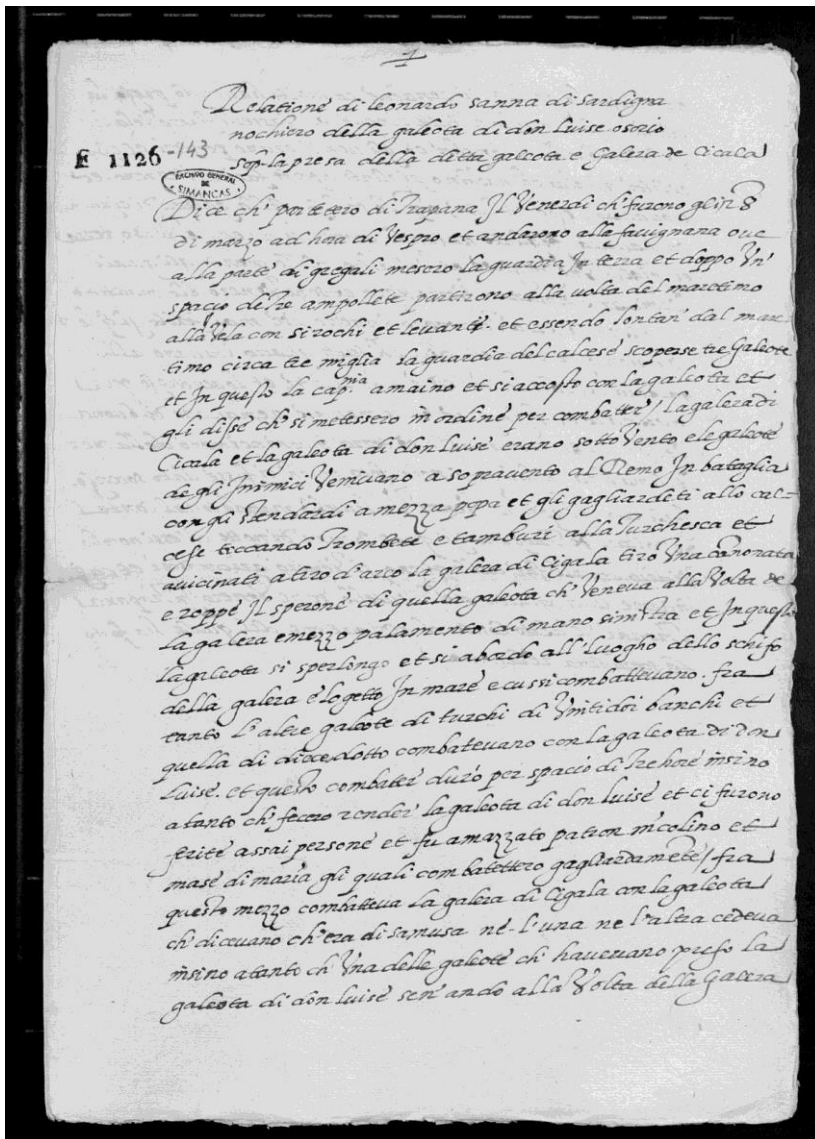 Relatione di leonardo sanna di sardigna
nochiero della galeota di don luise osorio
E 1126 -143
sop. la presa della ditta galeota e Galera de Cicala
ARCHIVO GENERAL
DE
SIMANCAS
Dice ch' partetero di Trapana Il Venerdi ch' furono gli 8
di marzo ad hora di Vespro et andorono alla favignana ove
alla parte di gregali mesero la guardia In terra et doppo Un'
spacio de tre ampollete partirono alla volta del maretimo
alla Vela con sirochi et levanti. et essendo lontan' dal mare
timo circa tre miglia la guardia del calcese scoperse tre Galeote
et In questo la cap.nia amaino et si accosto con la galeota et
gli disse ch' si metessero in ordine per combater / la galera di
Cicala et la galeota di don luise erano sotto Vento e le galeote
de gli Inimici Venivano a sopravento al Remo In bataglia
con gli stendardi a mezza popa et gli gagliardeti allo cal=
cese toccando Trombete e tamburi alla Turchesca et
avicinati a tiro d'arco la galera di Cigala tiro Una canonata
e roppe Il sperone di quella galeota ch' Veneva alla Volta de
la galera e mezzo palamento di mano sinistra et In questo
la galeota si sperlongo et si abordo all' luogho dello schifo
della galera e lo getto In mare e cussi combattevano. fra
tanto l'altre galeote di turchi di Vintidoi banchi et
quella di diecedotto combatevano con la galeota di Don
Luise. et questo combater duro per spacio di Tre hore insino
a tanto ch' fecero render la galeota di don luise et ci furono
ferite assai persone et fu amazzato patron nicolino et
mase di maria gli quali combattettero gagliardamente / fra
questo mezzo combatteva la galera di Cigala con la galeota
ch' dicevano ch' era di samusa ne l'una ne l'altra cedeva
insino a tanto ch' Una delle galeote ch' havevano preso la
galeota di don luise sen' ando alla Volta della Galera